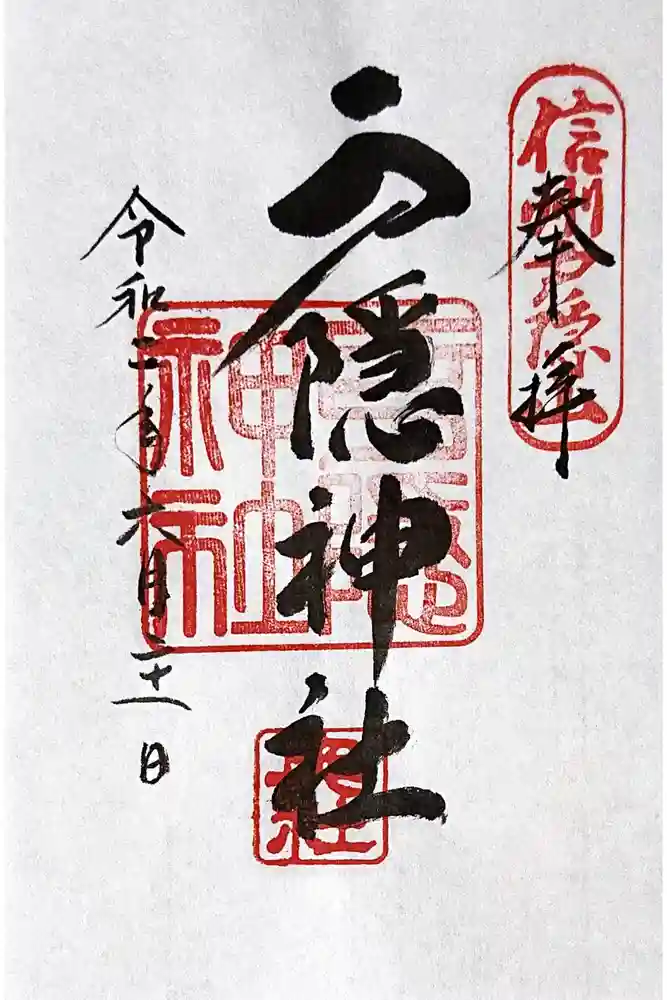 信州戸隠山
奉拝
戸隠神社
戸隠
神社
令和二年六月二十一日